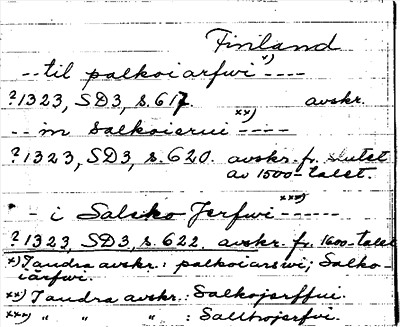 Finland
--til palkoiarfwi x) ----
?1323, SD3, s. 617. avskr.
--m Salkoierui xx) ----
?1323, SD3, s. 620. avskr. fr. slutet
av 1500-talet.
-- i Salsko Jerfwi xxx) -----
?1323, SD3, s. 622. avskr. fr. 1600-talet
x) I andra avskr.: palkoiarswi; Salko-
iärfwi.
xx) I andra avskr.: Salkojerffui.
xxx) " " " : Salthojerfvi.